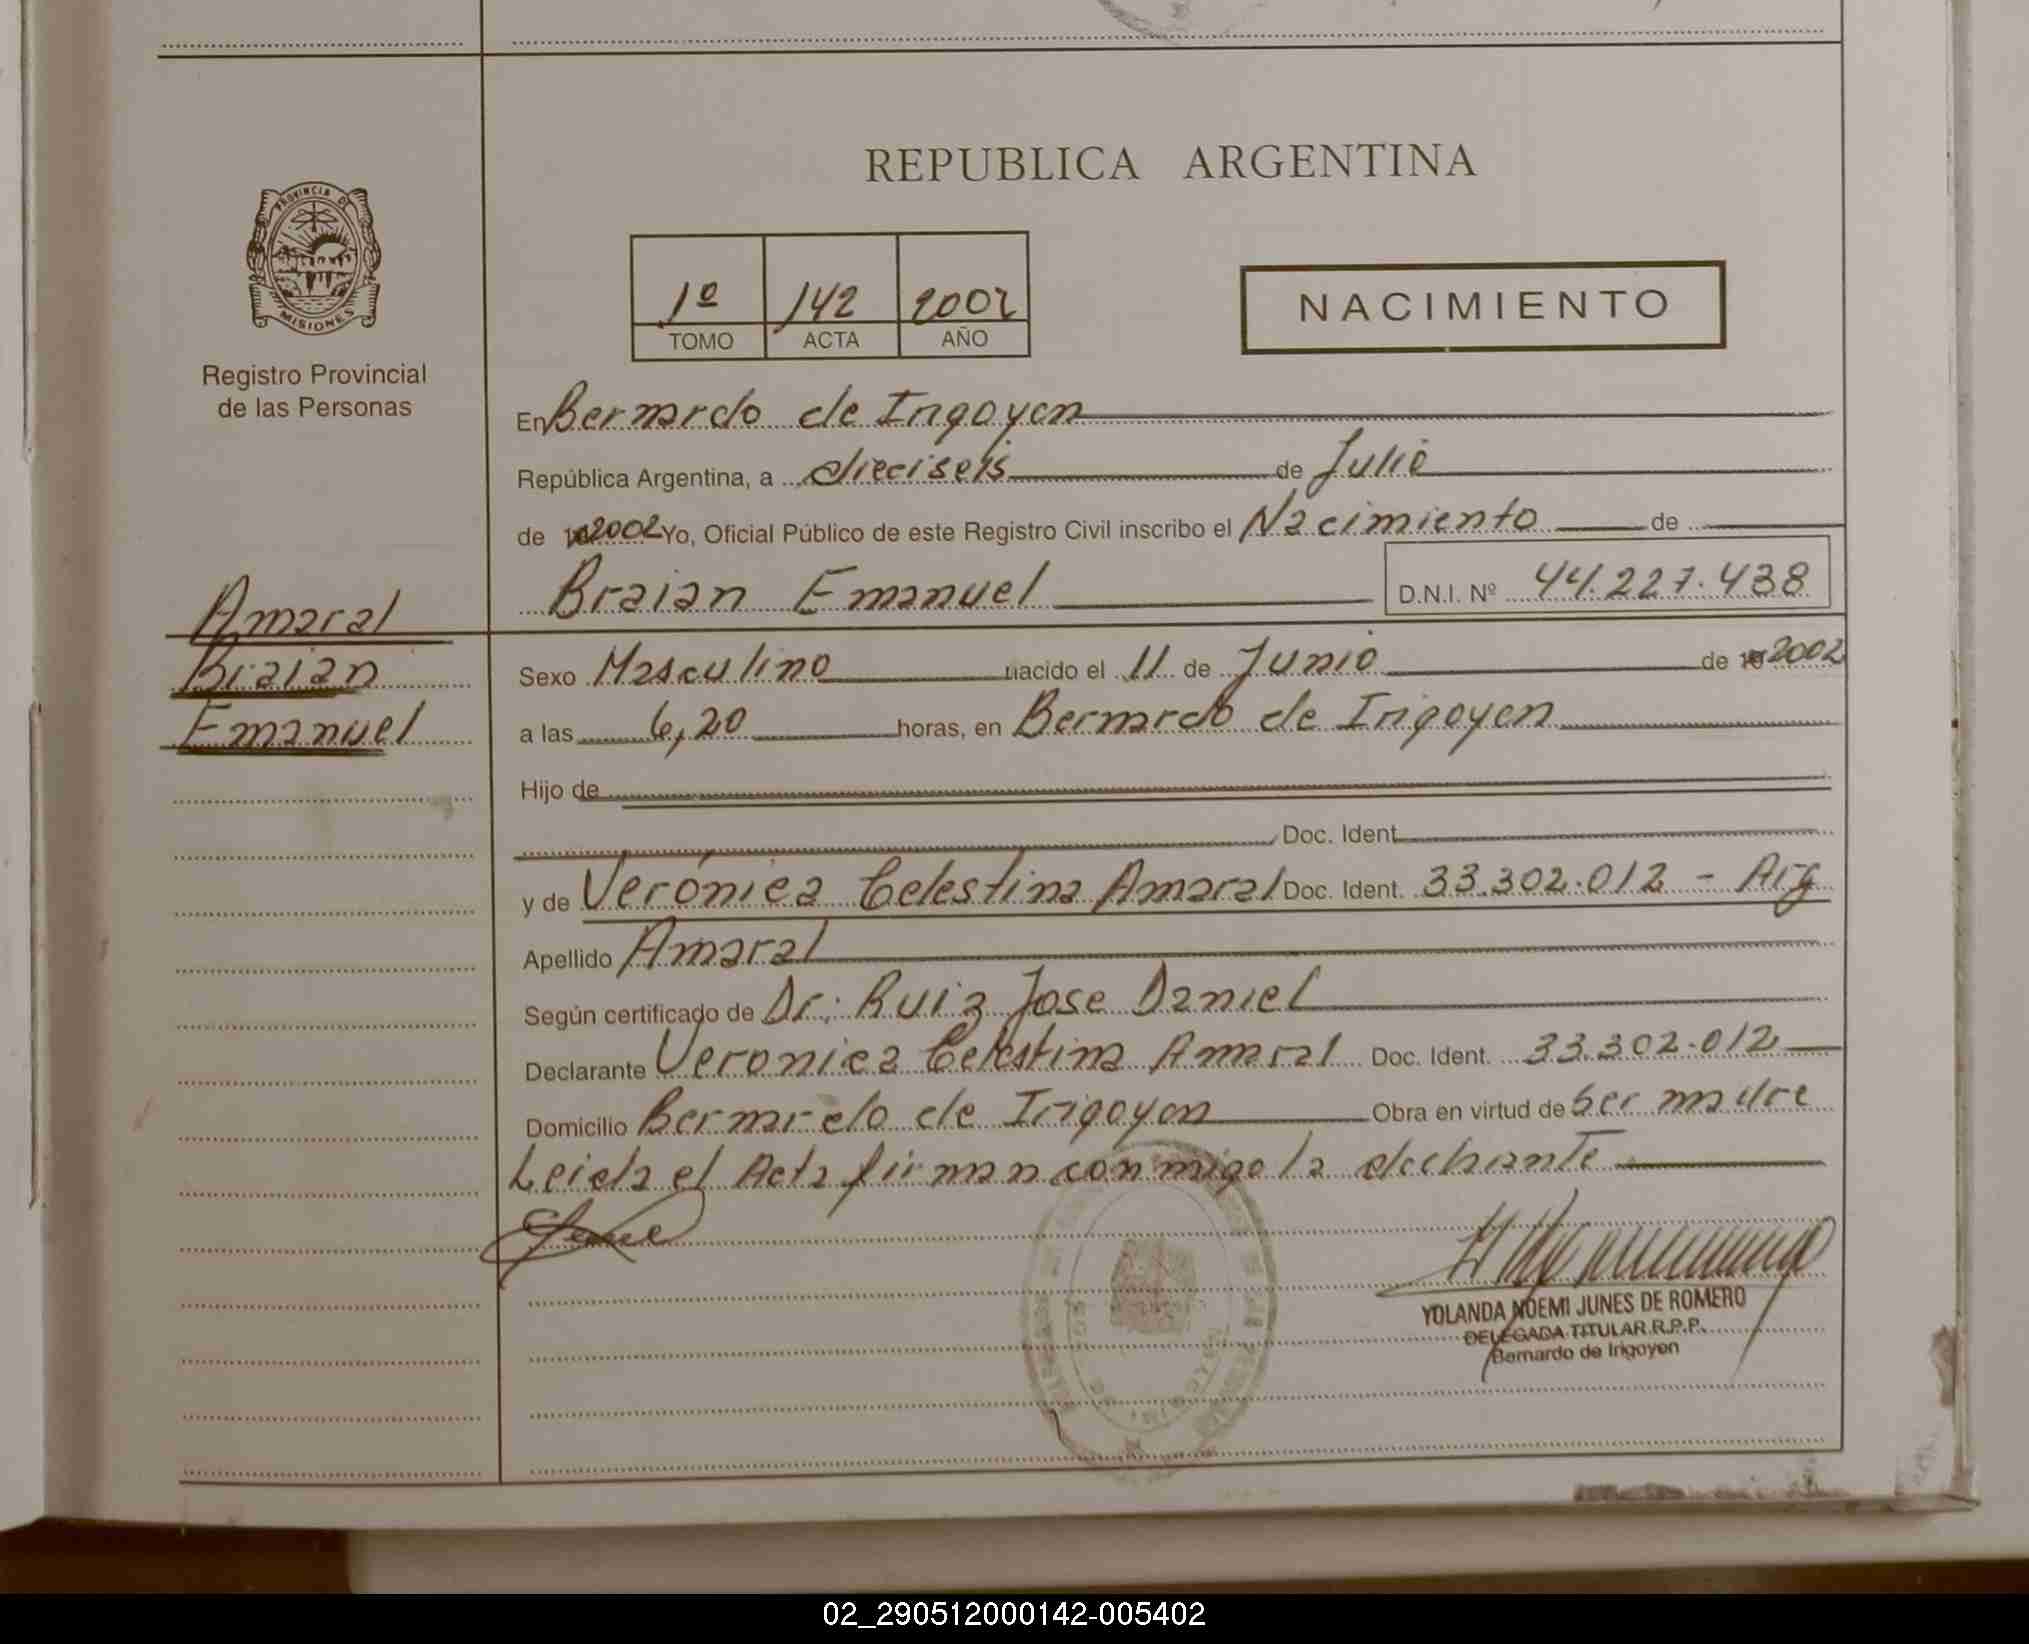 REPUBLICA ARGENTINA
PROVINCIA DE
MISIONES
Registro Provincial
de las Personas
1º 142 2002
TOMO ACTA AÑO
NACIMIENTO
En Bernardo de Irigoyen
República Argentina, a dieciseis de Julio
de 2002 Yo, Oficial Público de este Registro Civil inscribo el Nacimiento de
Braian Emanuel D.N.I. Nº 44.227.438
Amaral
Braian
Emanuel
Sexo Masculino nacido el 11 de Junio de 19 2002
a las 6,20 horas, en Bernardo de Irigoyen
Hijo de
Doc. Ident.
y de Verónica Celestina Amaral Doc. Ident. 33.302.012 - Arg
Apellido Amaral
Según certificado de Dr: Ruiz Jose Daniel
Declarante Veronica Celestina Amaral Doc. Ident. 33.302.012
Domicilio Bernardo de Irigoyen Obra en virtud de ser madre
Leida el Acta firman conmigo la
YOLANDA NOEMI JUNES DE ROMERO
DELEGADA TITULAR R.P.P.
Bernardo de Irigoyen
02_290512000142-005402